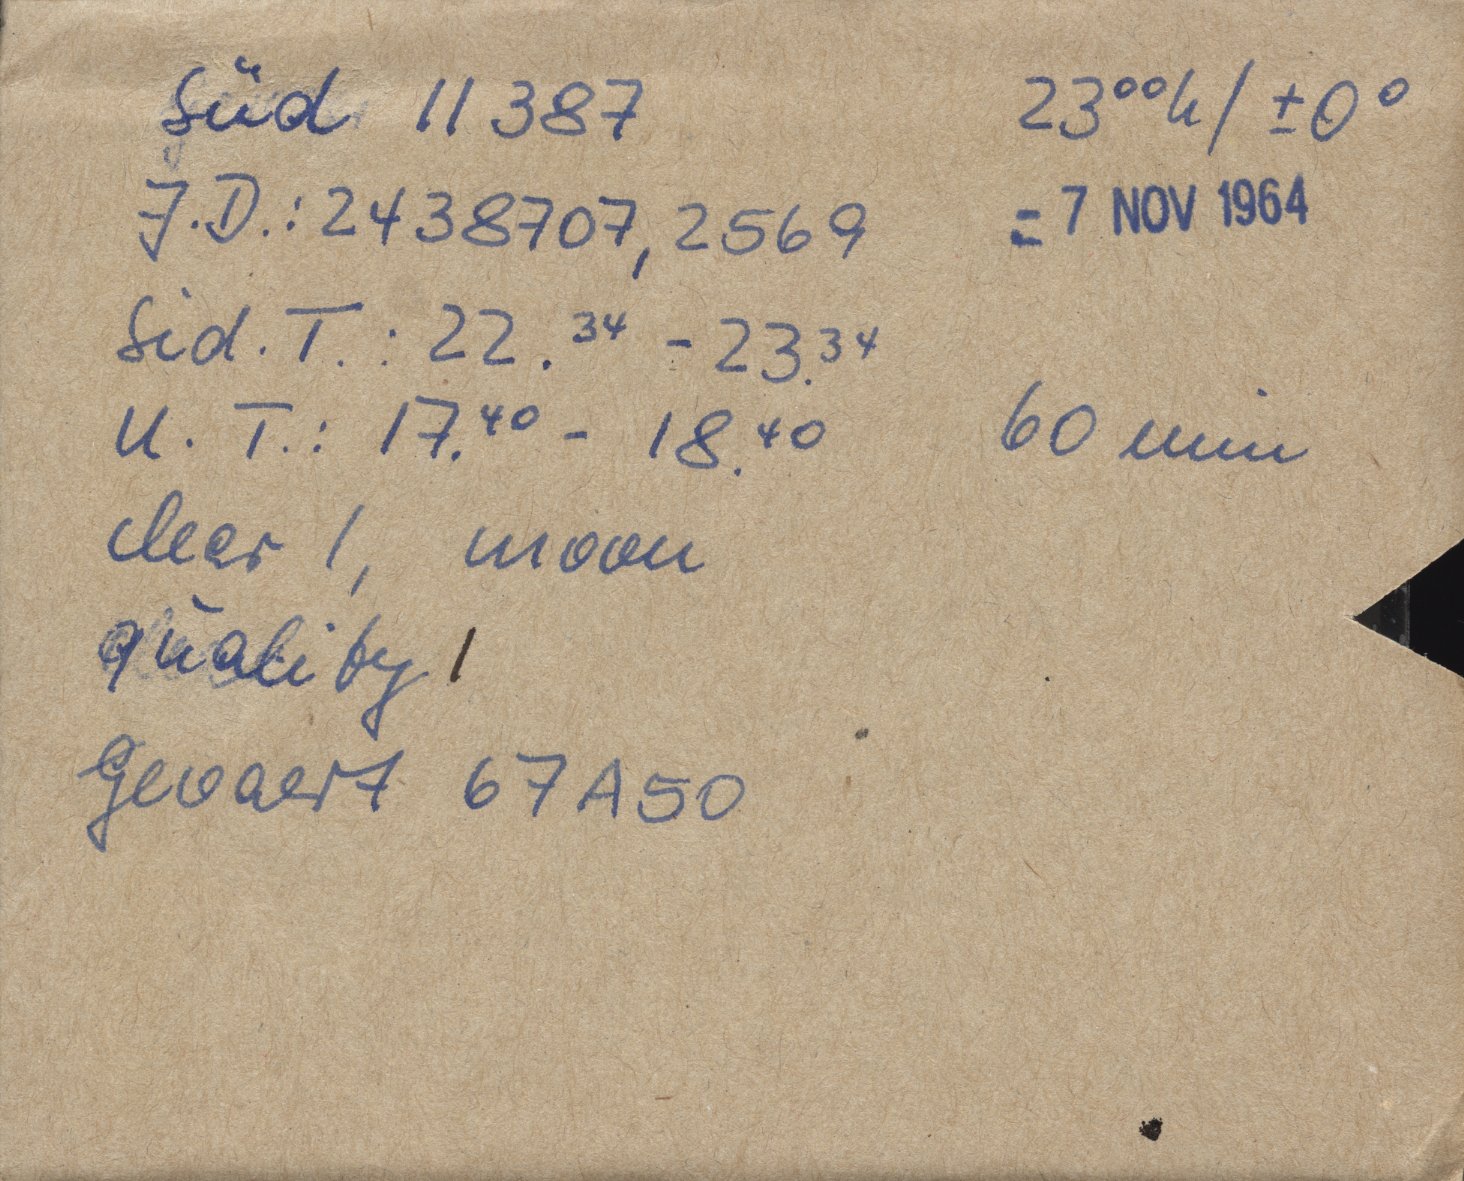 Süd 11387 23⁰⁰h/ ±0°
J.D.: 2438707,2569 = 7 NOV 1964
Sid. T.: 22.³⁴ - 23.³⁴
U. T.: 17.⁴⁰ - 18.⁴⁰ 60 min
clear 1, moon
quality 1
Gevaert 67A50